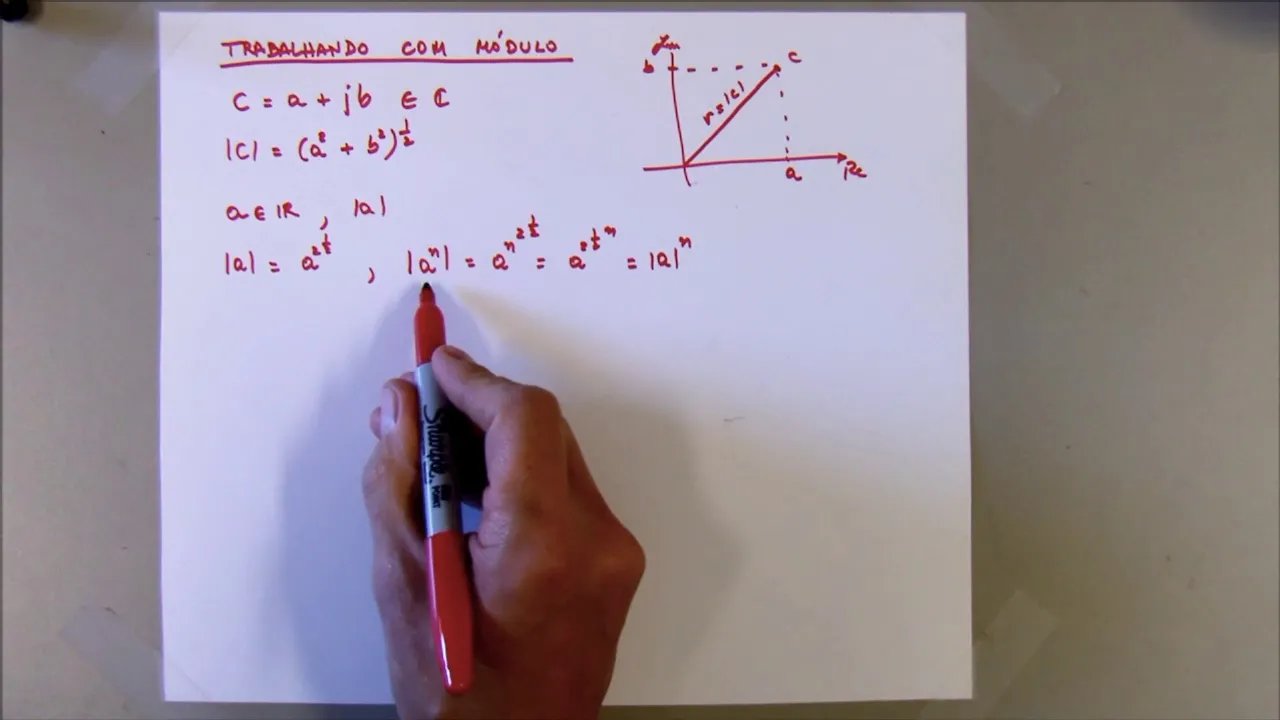 TRABALHANDO COM MÓDULO
C = a + jb ∈ ℂ
|C| = (a² + b²)^½
a ∈ ℝ , |a|
|a| = a^2^½ , |a^n| = a^n^2^½ = a^2^½^n = |a|^n
Im
b
C
r=|c|
a
Re
Sharpie